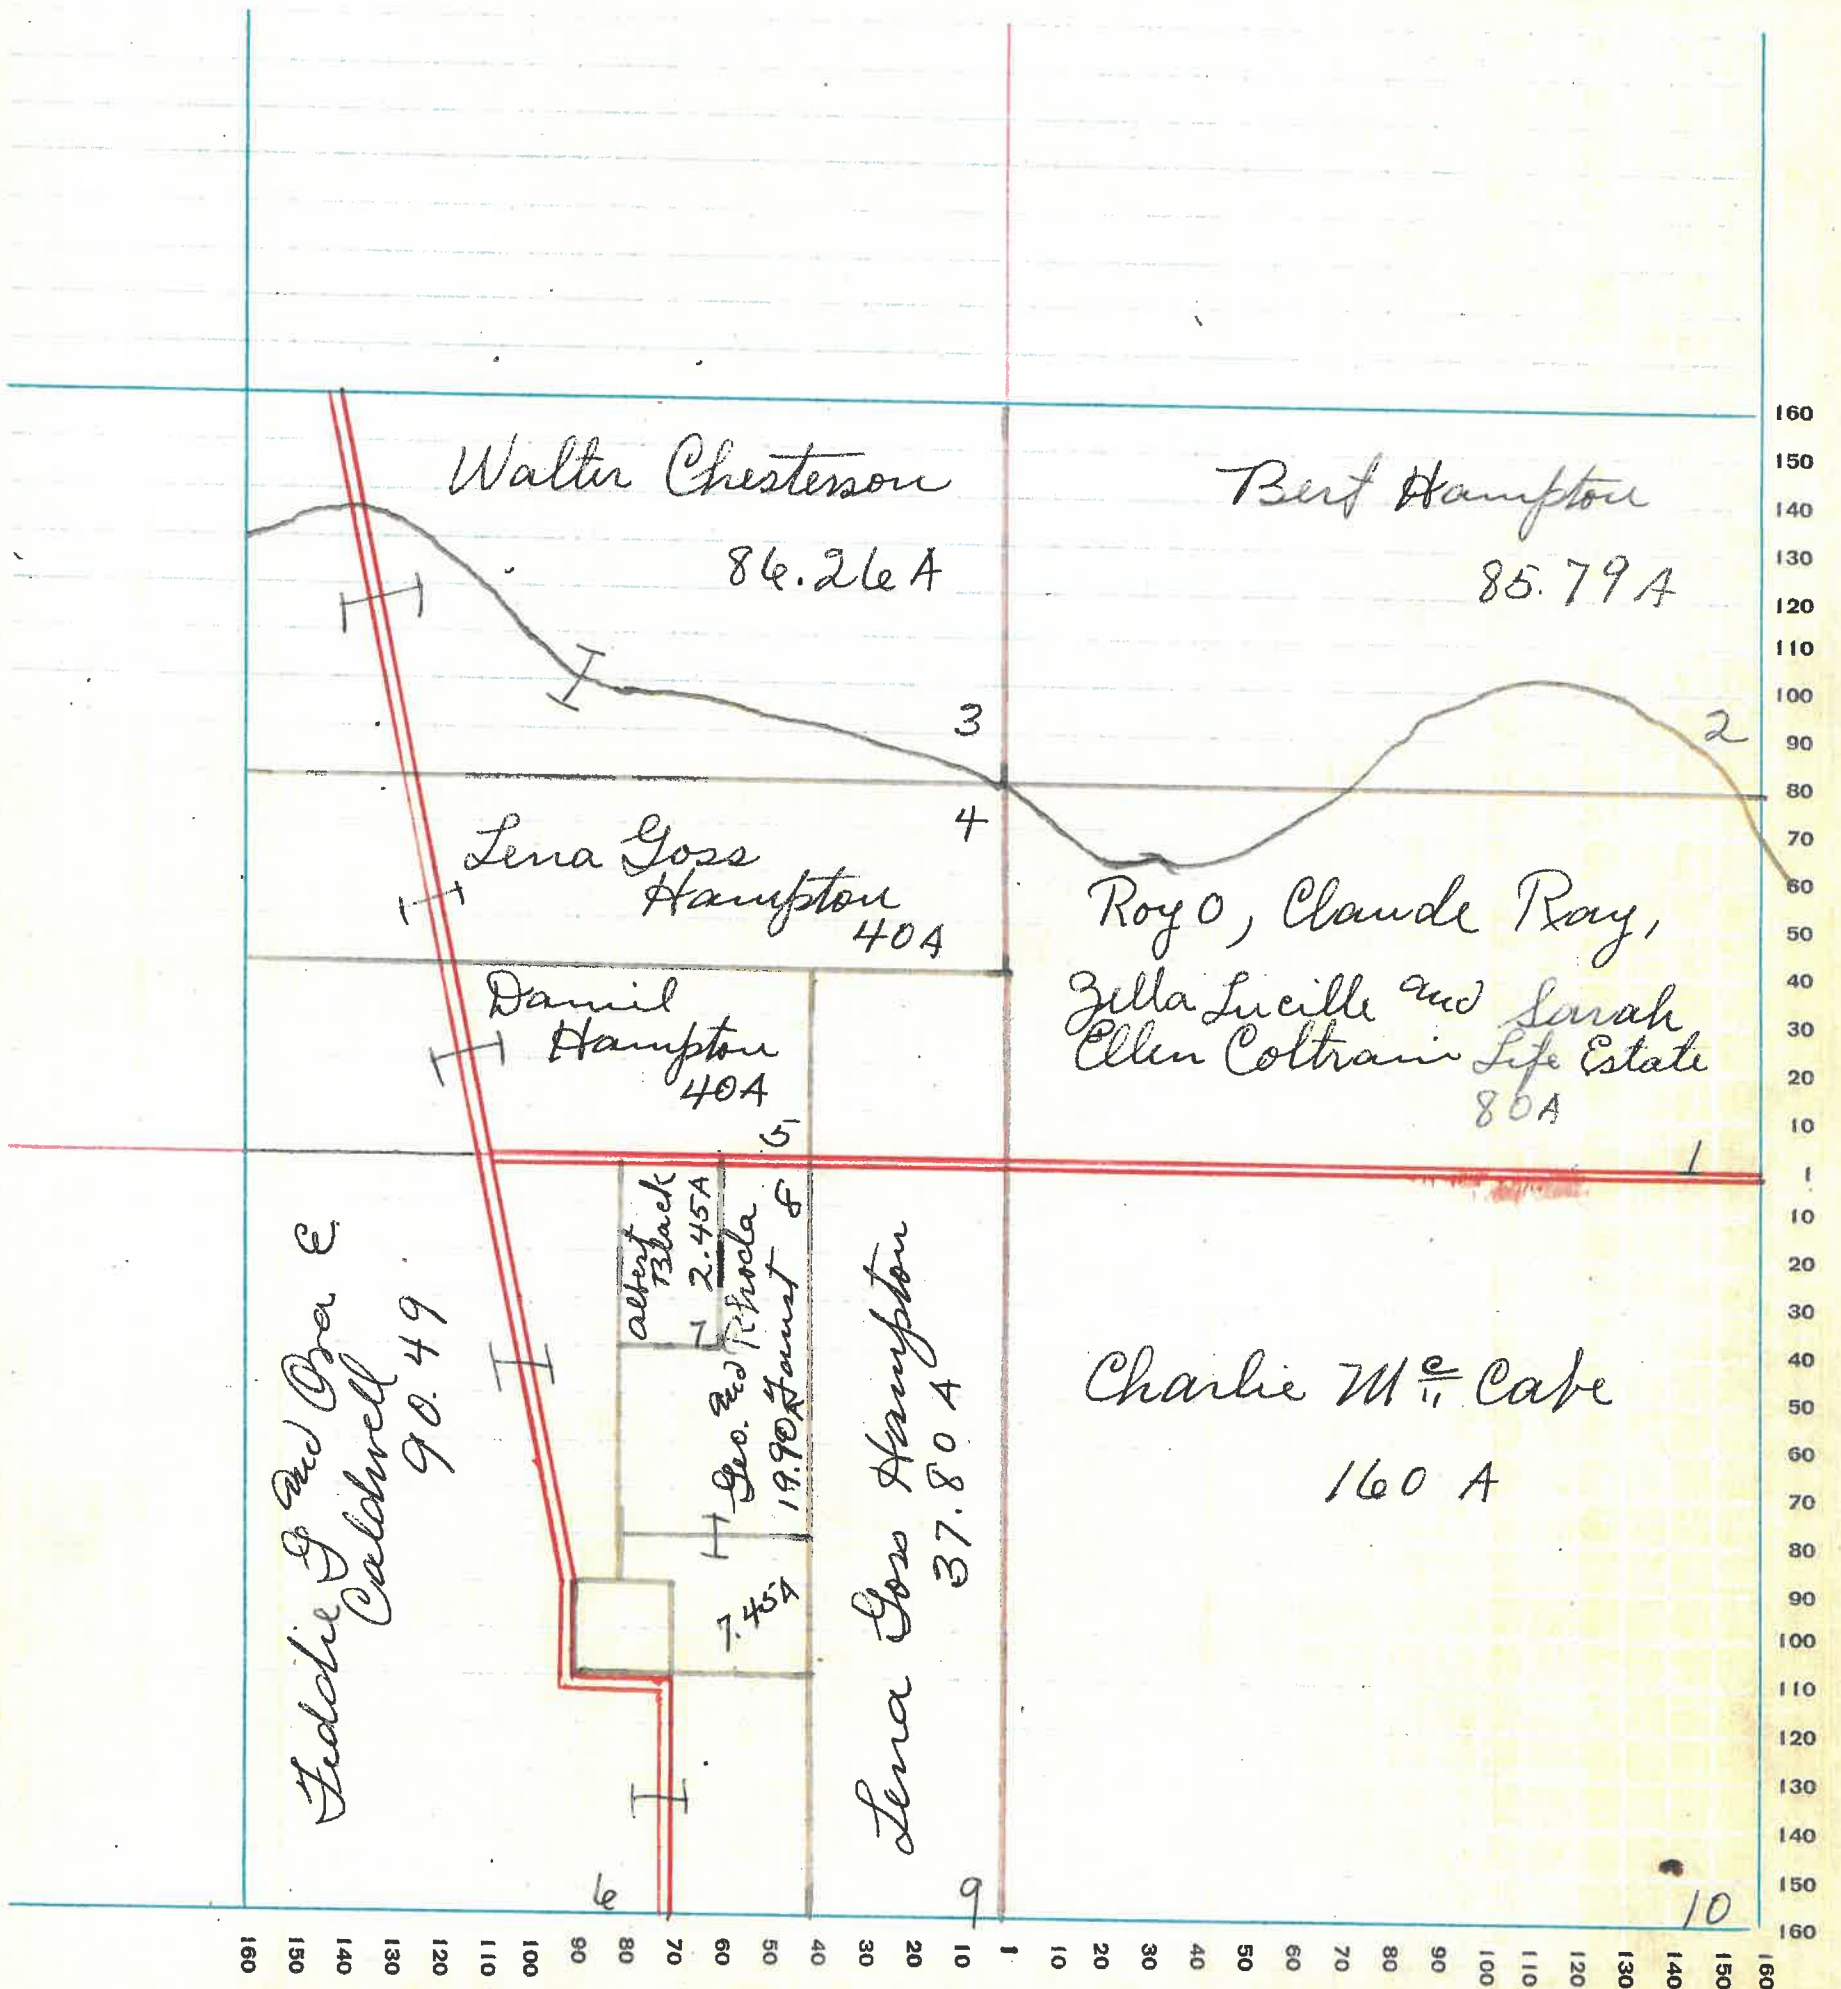 Walter Chesterson
86.26 A
Bert Hampton
85.79 A
3
2
4
Lena Goss
Hampton
40 A
Roy O, Claude Ray,
Zella Lucille and Sarah
Ellen Coltrain Life Estate
80 A
Daniel
Hampton
40A
5
1
Albert
Black
2.45A
7
Geo. and Rhoda
19.90A
8
7.45A
Lena Goss Hampton
37.80 A
9
Caldwell
90.49
6
Charlie Mc Cabe
160 A
10
160
150
140
130
120
110
100
90
80
70
60
50
40
30
20
10
1
10
20
30
40
50
60
70
80
90
100
110
120
130
140
150
160
160 150 140 130 120 110 100 90 80 70 60 50 40 30 20 10 1 10 20 30 40 50 60 70 80 90 100 110 120 130 140 150 160